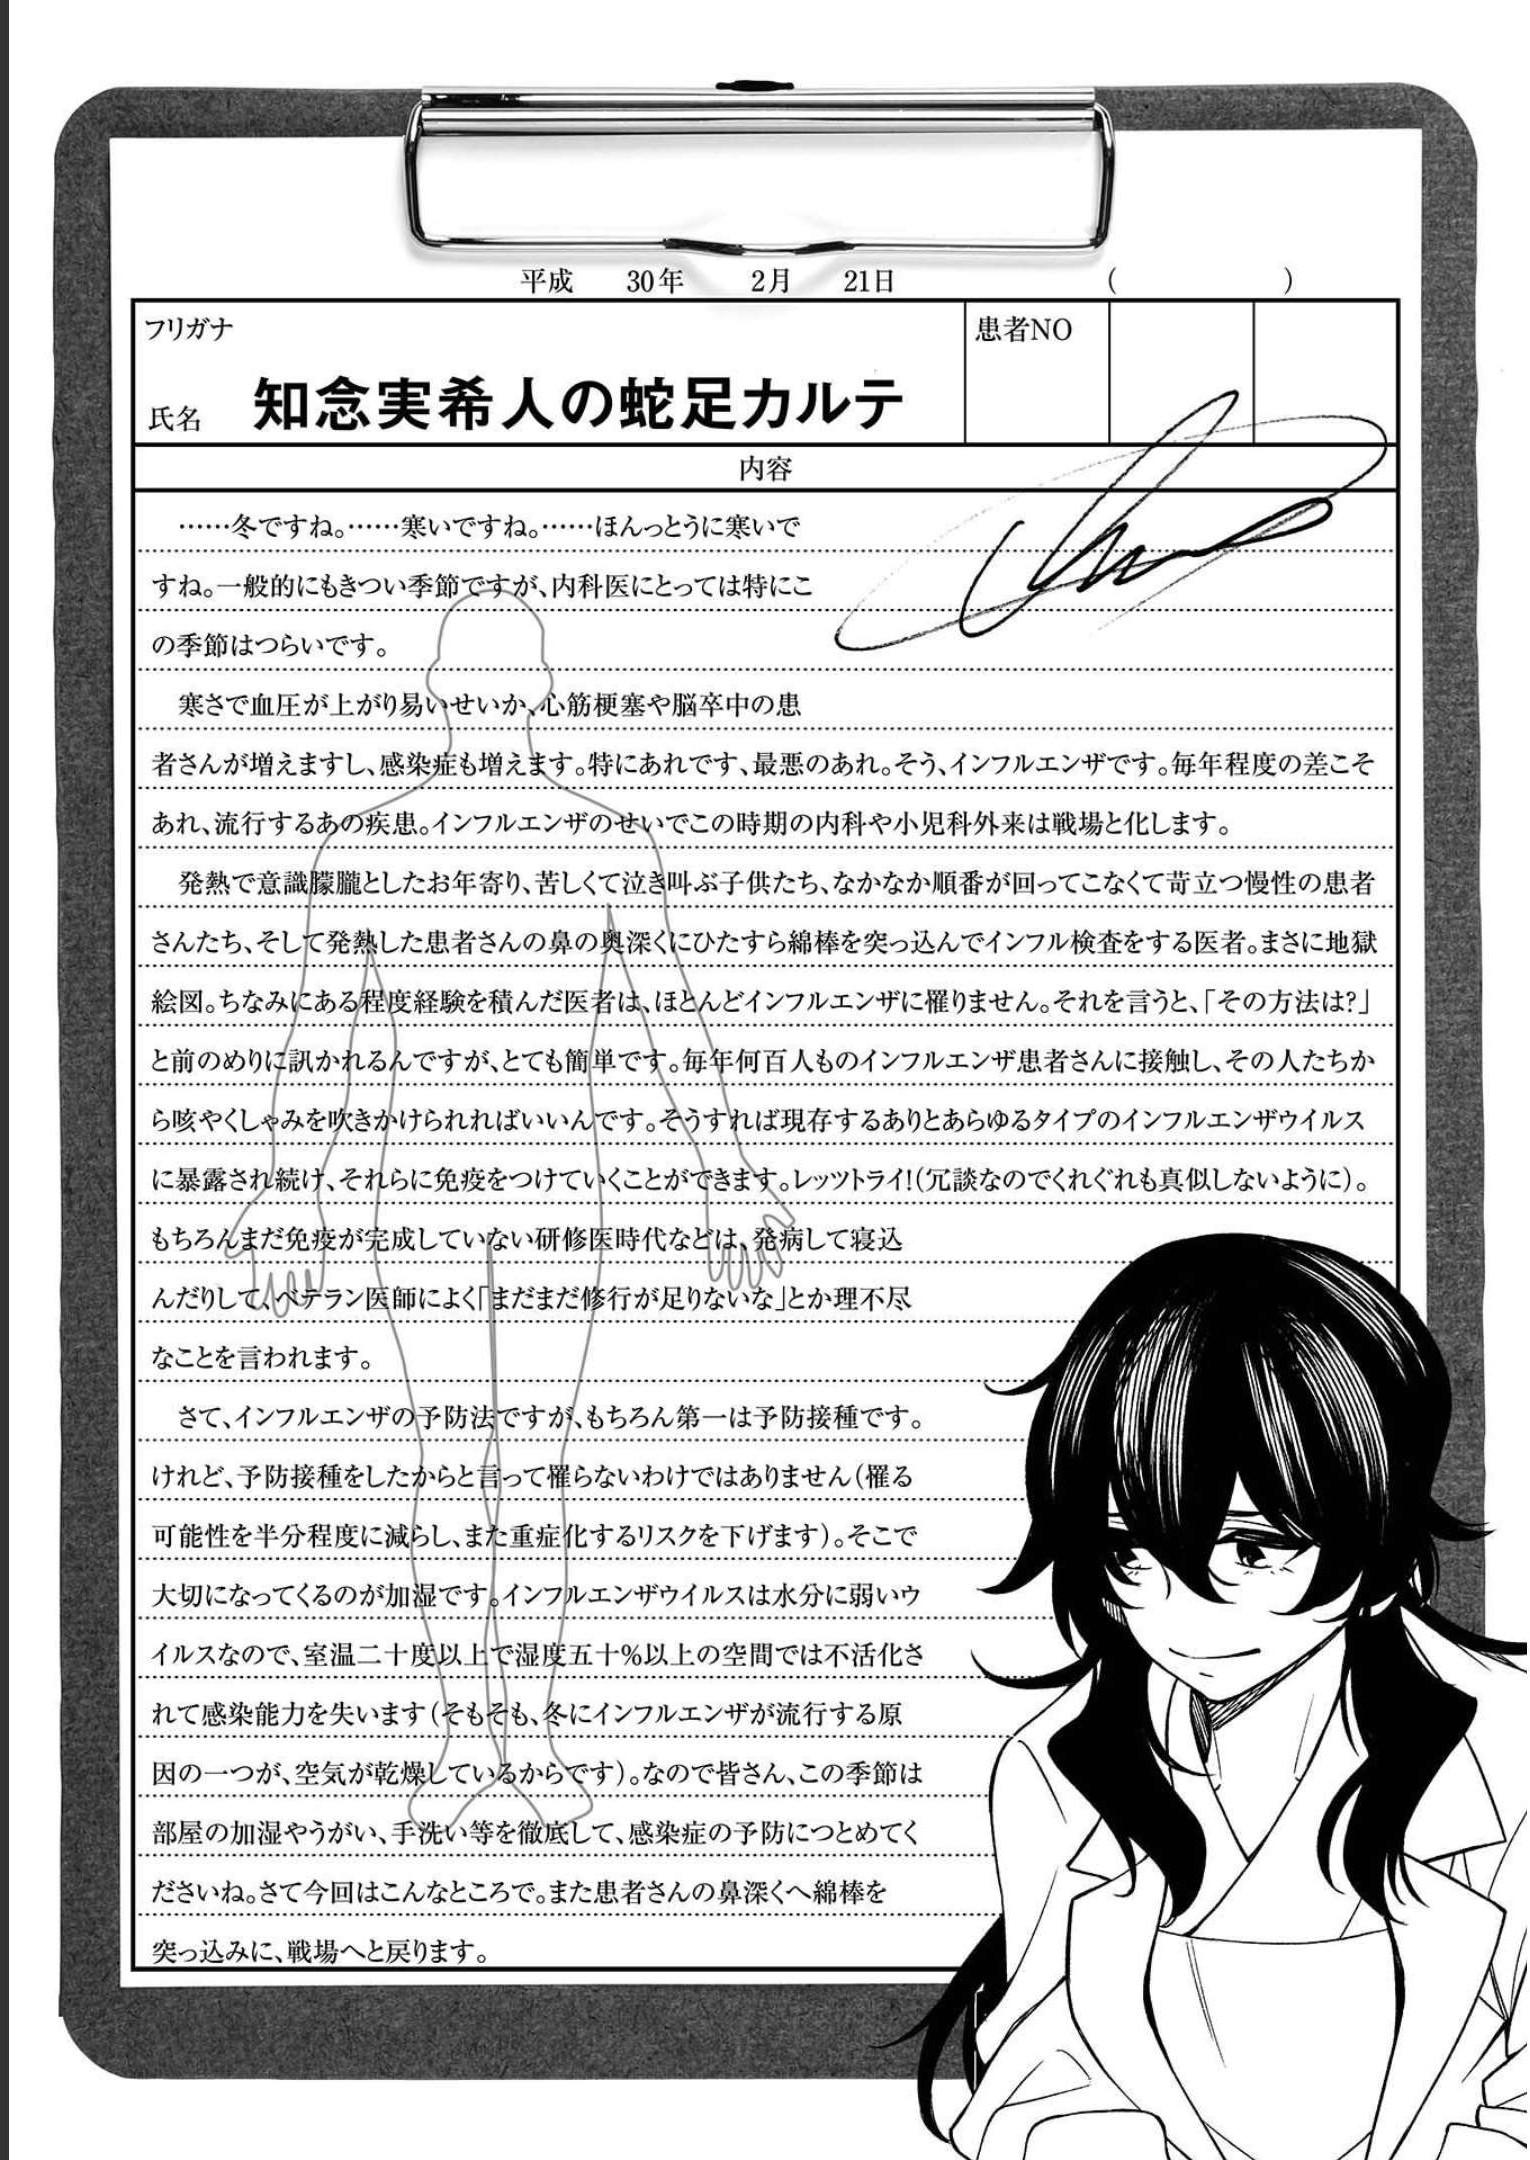 平成 30年 2月 21日 ( )
フリガナ
患者NO
氏名 知念実希人の蛇足カルテ
内容
……冬ですね。……寒いですね。……ほんっとうに寒いで
すね。一般的にもきつい季節ですが、内科医にとっては特にこ
の季節はつらいです。
寒さで血圧が上がり易いせいか、心筋梗塞や脳卒中の患
者さんが増えますし、感染症も増えます。特にあれです、最悪のあれ。そう、インフルエンザです。毎年程度の差こそ
あれ、流行するあの疾患。インフルエンザのせいでこの時期の内科や小児科外来は戦場と化します。
発熱で意識朦朧としたお年寄り、苦しくて泣き叫ぶ子供たち、なかなか順番が回ってこなくて苛立つ慢性の患者
さんたち、そして発熱した患者さんの鼻の奥深くにひたすら綿棒を突っ込んでインフル検査をする医者。まさに地獄
絵図。ちなみにある程度経験を積んだ医者は、ほとんどインフルエンザに罹りません。それを言うと、「その方法は?」
と前のめりに訊かれるんですが、とても簡単です。毎年何百人ものインフルエンザ患者さんに接触し、その人たちか
ら咳やくしゃみを吹きかけられればいいんです。そうすれば現存するありとあらゆるタイプのインフルエンザウイルス
に暴露され続け、それらに免疫をつけていくことができます。レッツトライ!(冗談なのでくれぐれも真似しないように)。
もちろんまだ免疫が完成していない研修医時代などは、発病して寝込
んだりして、ベテラン医師によく「まだまだ修行が足りないな」とか理不尽
なことを言われます。
さて、インフルエンザの予防法ですが、もちろん第一は予防接種です。
けれど、予防接種をしたからと言って罹らないわけではありません(罹る
可能性を半分程度に減らし、また重症化するリスクを下げます)。そこで
大切になってくるのが加湿です。インフルエンザウイルスは水分に弱いウ
イルスなので、室温二十度以上で湿度五十%以上の空間では不活化さ
れて感染能力を失います(そもそも、冬にインフルエンザが流行する原
因の一つが、空気が乾燥しているからです)。なので皆さん、この季節は
部屋の加湿やうがい、手洗い等を徹底して、感染症の予防につとめてく
ださいね。さて今回はこんなところで。また患者さんの鼻深くへ綿棒を
突っ込みに、戦場へと戻ります。